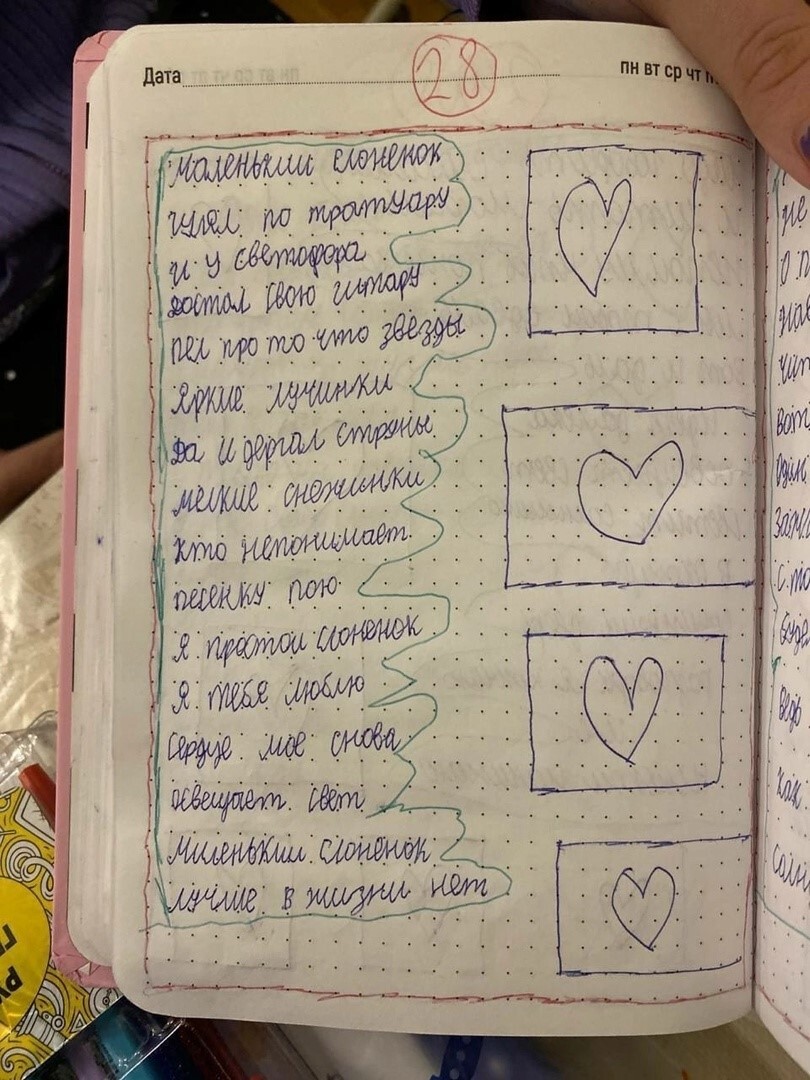 Дата
28
пн вт ср чт п
Маленький слоненок
шел по тротуару
и у светофора
достал свою гитару
пел про то что звезды
яркие лучинки
да и дергал струны
мелкие снежинки
кто непонимает
песенку пою
я простои слоненок
я тебя люблю
сердце мое снова
освещает свет
миленькии слоненок
лучше в жизни нет
не
О п
нав
чит
вот
один
с то
буде
ведь
как
солн